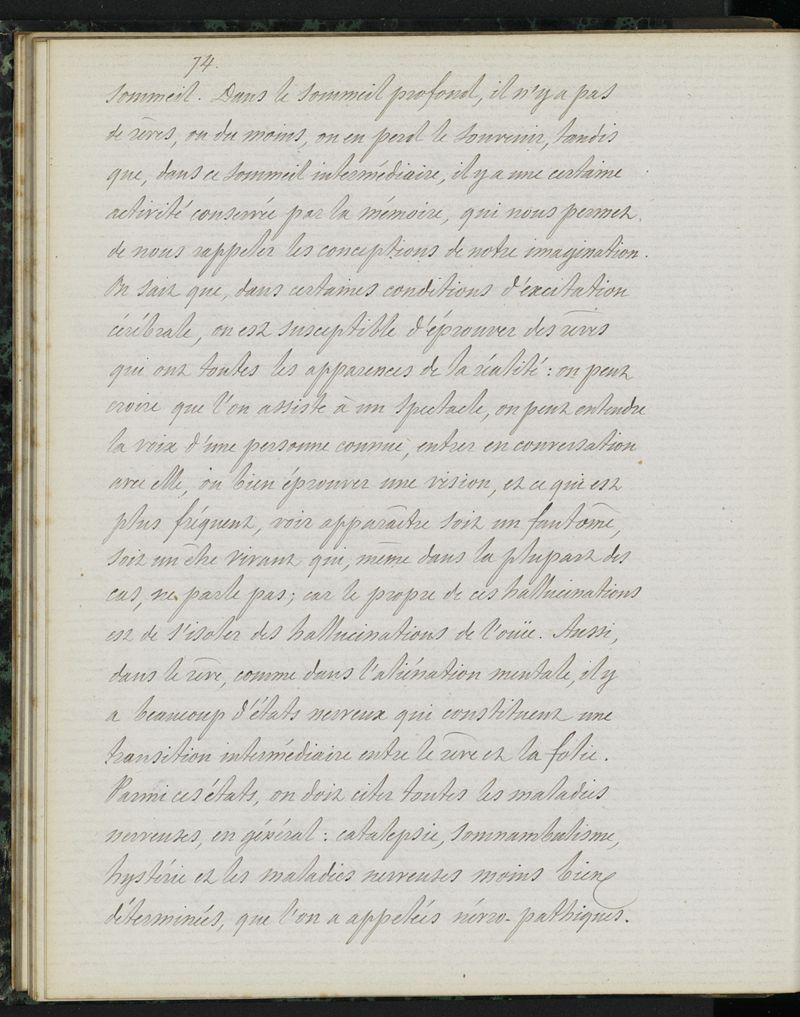 74.
sommeil. Dans le sommeil profond, il n'y a pas
de rêves, ou du moins, on en perd le souvenir, tandis
que, dans ce sommeil intermédiaire, il y a une certaine
activité conservée par la mémoire, qui nous permet
de nous rappeler les conceptions de notre imagination.
On sait que, dans certaines conditions d'éxcitation
cérébrale, on est susceptible d'éprouver des rêves
qui ont toutes les apparences de la réalité : on peut
croire que l'on assiste à un spectacle, on peut entendre
la voix d'une personne connue, entrer en conversation
avec elle, ou bien éprouver une vision, et ce qui est
plus fréquent, voir apparaître soit un fantôme,
soit un être vivant qui, même dans la plupart des
cas, ne parle pas; car le propre de ces hallucinations
est de s'isoler des hallucinations de l'ouïe. Aussi,
dans le rêve, comme dans l'aliénation mentale, il y
a beaucoup d'états nerveux qui constituent une
transition intermédiaire entre le rêve et la folie.
Parmi ces états, on doit citer toutes les maladies
nerveuses, en général : catalepsie, somnambulisme,
hystérie et les maladies nerveuses moins bien
déterminées, que l'on a appelées névro-pathiques.